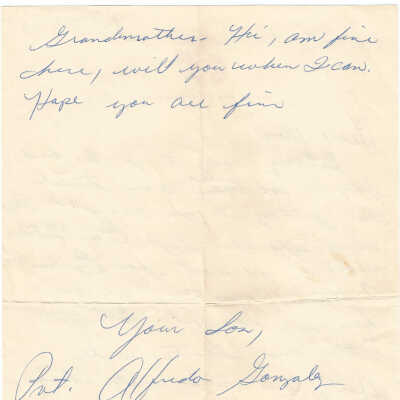 Grandmother- Hi, am fine
here, will you when I can.
Hope you all fine
Your Son,
Pvt. Alfredo Gonzalez